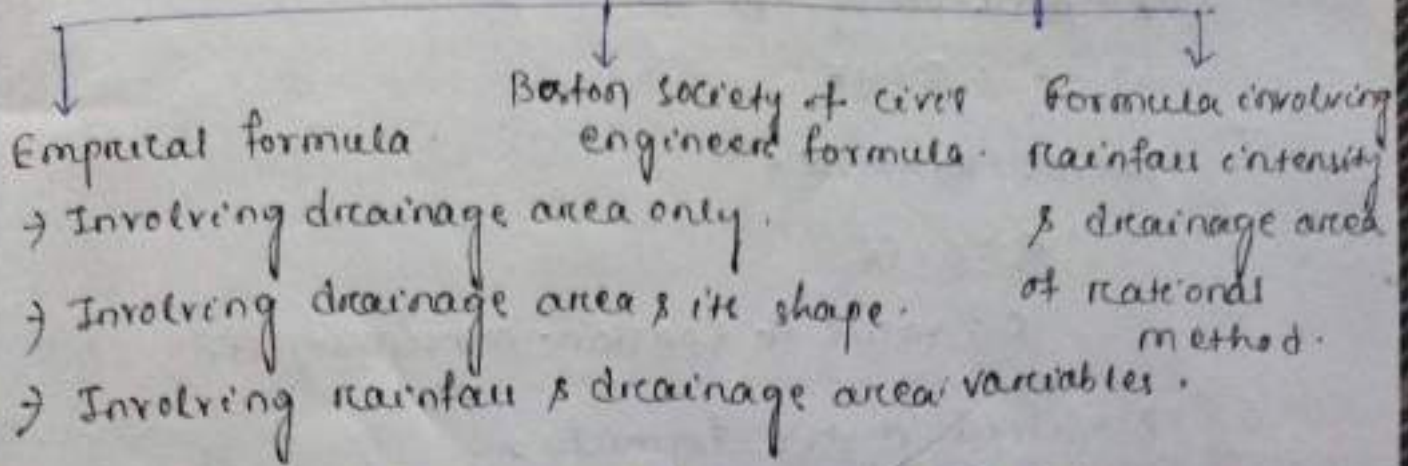 Emprical formula
→ Involving drainage area only.
→ Involving drainage area & its shape.
→ Involving rainfall & drainage area variables.
Boston society of civil
engineers formula.
Formula involving
rainfall intensity
& drainage area
of rational
method.